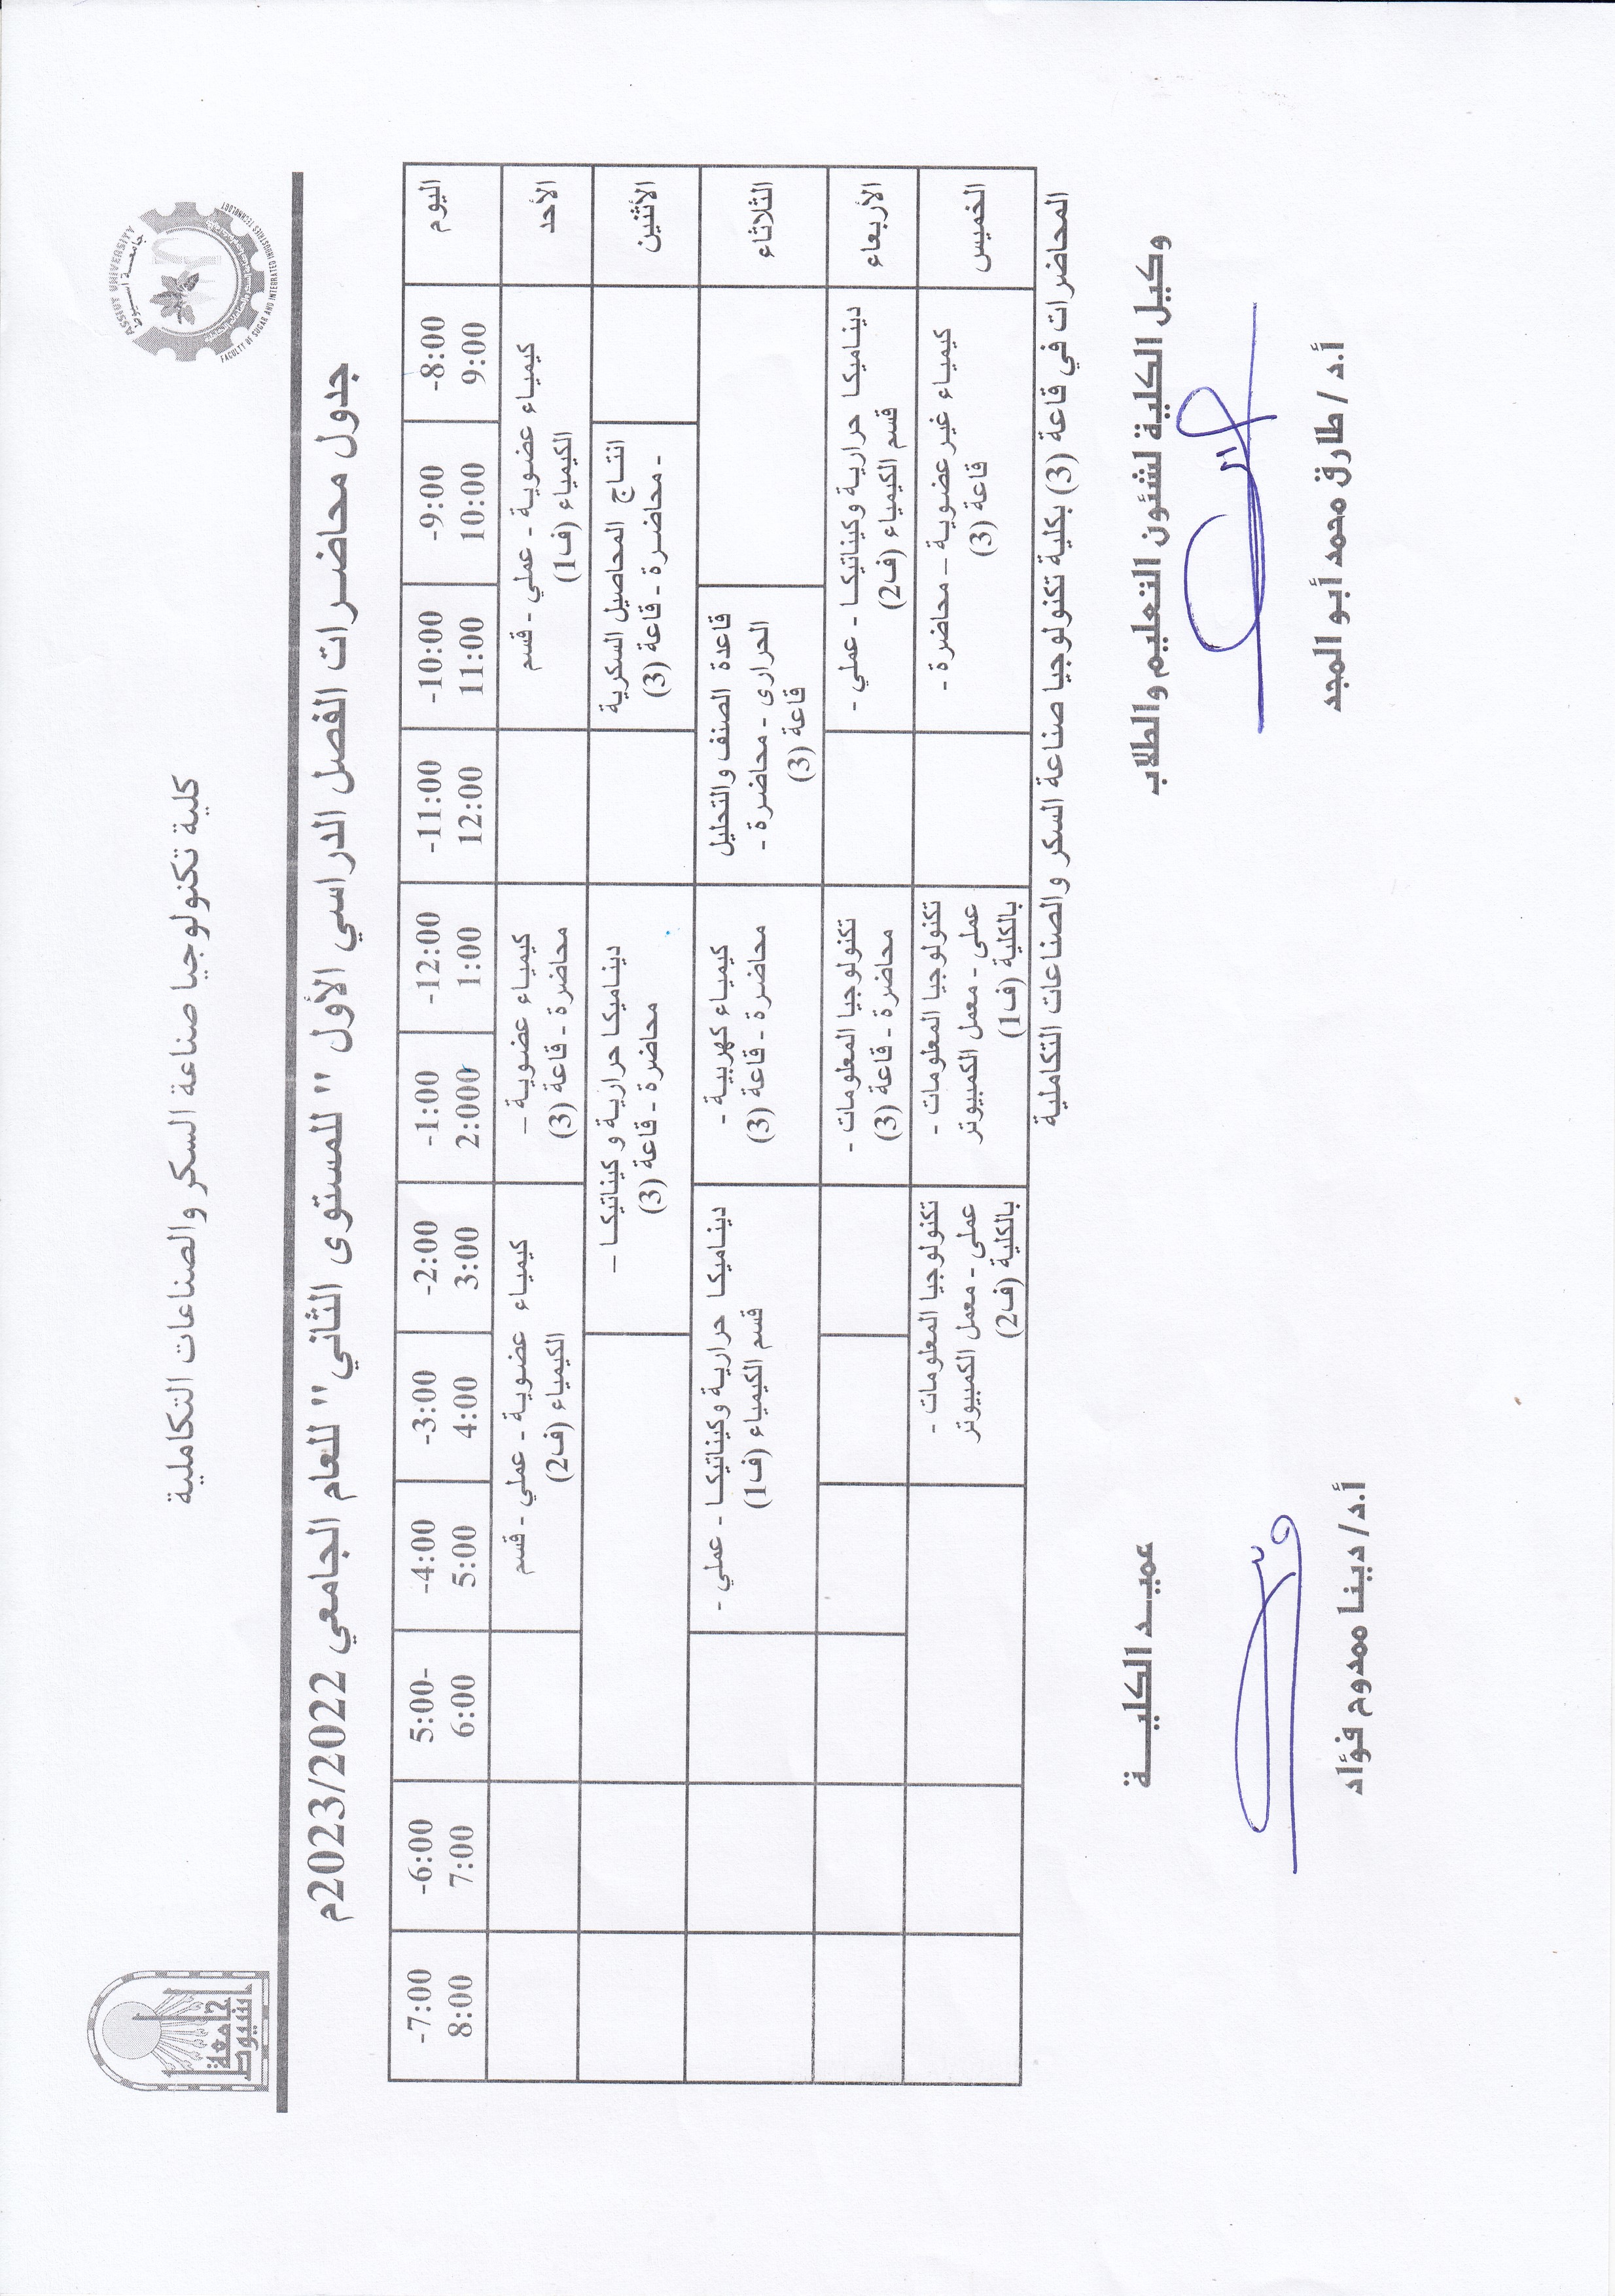 ASSIUT UNIVERSITY
جامعة أسيوط
FACULTY OF SUGAR AND INTEGRATED INDUSTRIES TECHNOLOGY
كلية تكنولوجيا صناعة السكر والصناعات التكاملية
جامعة
أسيوط
جدول محاضرات الفصل الدراسي الأول " للمستوى الثاني" للعام الجامعي 2023/2022م
اليوم
-8:00
9:00
-9:00
10:00
-10:00
11:00
-11:00
12:00
-12:00
1:00
-1:00
2:000
-2:00
3:00
-3:00
4:00
-4:00
5:00
5:00-
6:00
-6:00
7:00
-7:00
8:00
الأحد
كيمياء عضوية - عملي - قسم
الكيمياء (ف1)
كيمياء عضوية –
محاضرة - قاعة (3)
كيمياء عضوية - عملي - قسم
الكيمياء (ف2)
الأثنين
انتاج المحاصيل السكرية
- محاضرة - قاعة (3)
ديناميكا حرارية و كيناتيكا –
محاضرة - قاعة (3)
الثلاثاء
قاعدة الصنف والتحليل
الحرارى - محاضرة -
قاعة (3)
كيمياء كهربية -
محاضرة - قاعة (3)
ديناميكا حرارية وكيناتيكا - عملي -
قسم الكيمياء (ف1)
الأربعاء
ديناميكا حرارية وكيناتيكا - عملي -
قسم الكيمياء (ف2)
تكنولوجيا المعلومات -
محاضرة - قاعة (3)
الخميس
كيمياء غير عضوية – محاضرة -
قاعة (3)
تكنولوجيا المعلومات -
عملى - معمل الكمبيوتر
بالكلية (ف1)
تكنولوجيا المعلومات -
عملى - معمل الكمبيوتر
بالكلية (ف2)
المحاضرات في قاعة (3) بكلية تكنولوجيا صناعة السكر والصناعات التكاملية
وكيل الكلية لشئون التعليم والطلاب
عميد الكلية
أ.د / طارق محمد أبو المجد
أ.د/ دينا ممدوح فؤاد